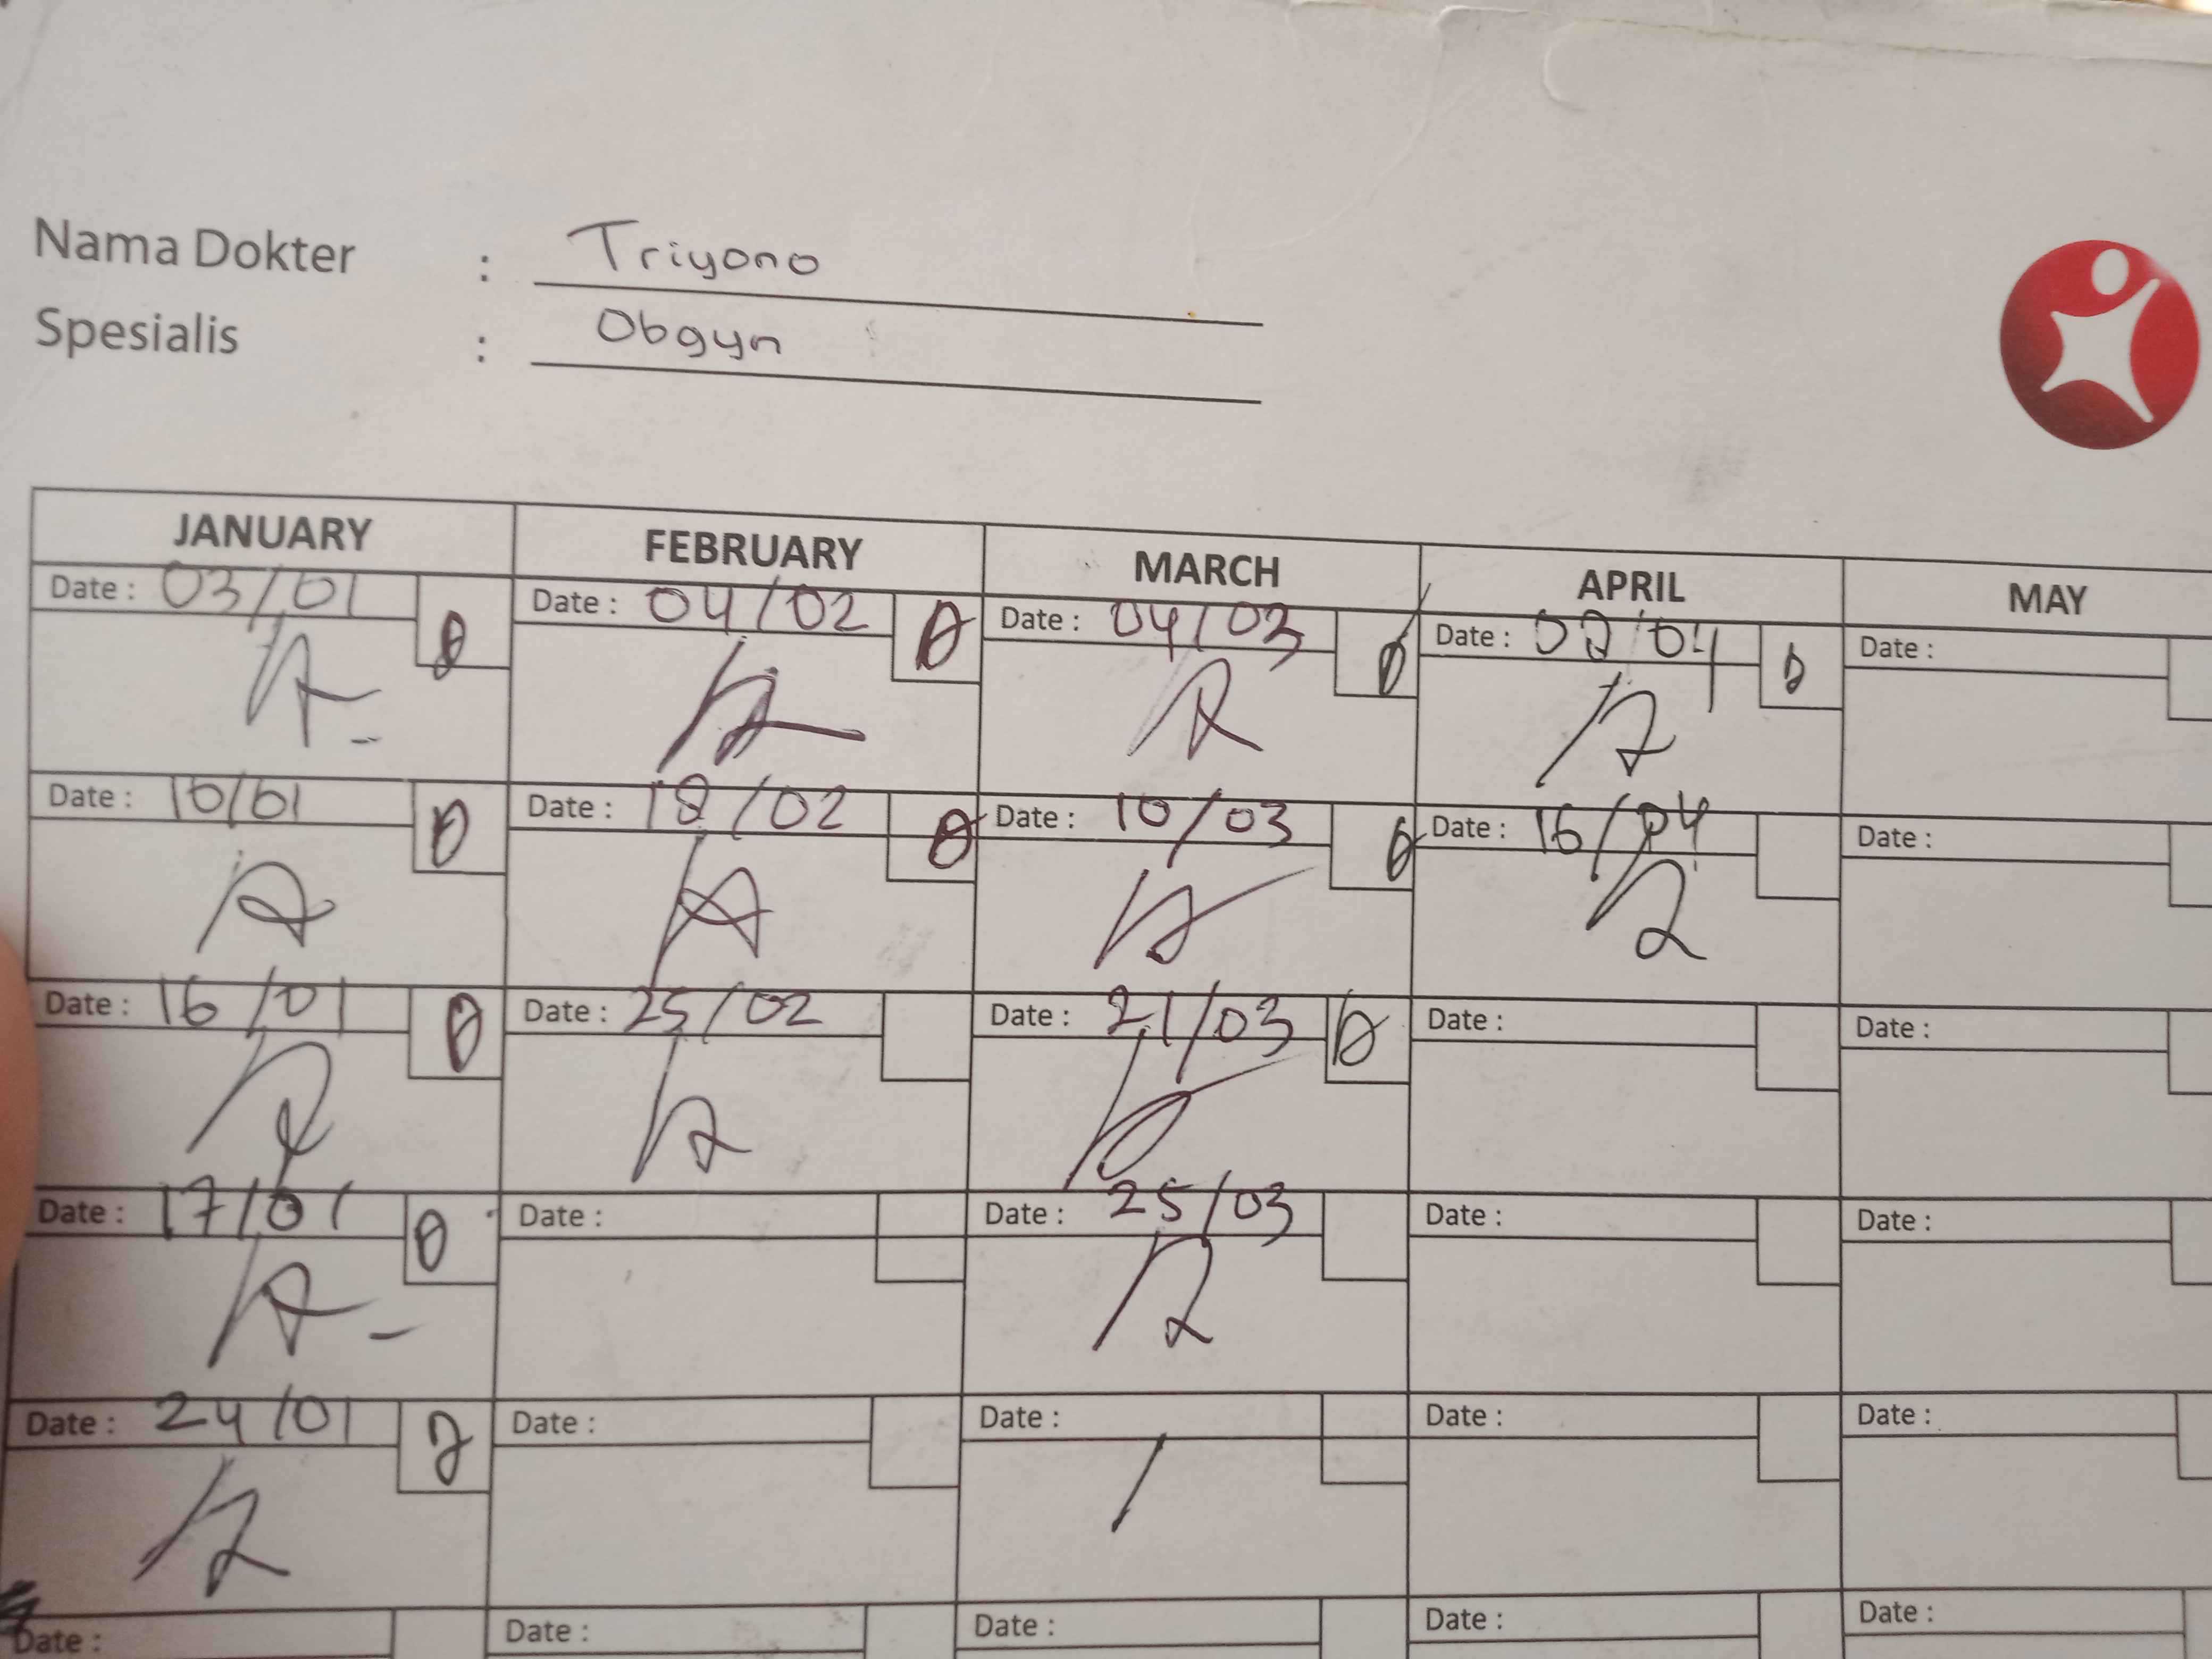 Nama Dokter : Triyono
Spesialis : Obgyn
JANUARY FEBRUARY MARCH APRIL MAY
Date : 03/01 Date : 04/02 Date : 04/03 Date : /04 Date :
Date : 10/01 Date : 18/02 Date : 10/03 Date : 16/04 Date :
Date : 16/01 Date : 25/02 Date : 21/03 Date : Date :
Date : 17/01 Date : Date : 25/03 Date : Date :
Date : 24/01 Date : Date : Date : Date :
Date : Date : Date : Date : Date :